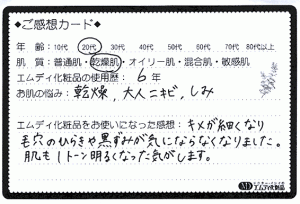 ◆ご感想カード◆
年 齢：10代 20代 30代 40代 50代 60代 70代 80代以上
肌 質：普通肌・乾燥肌・オイリー肌・混合肌・敏感肌
エムディ化粧品の使用歴：6年
お肌の悩み：乾燥，大人ニキビ，しみ
エムディ化粧品をお使いになった感想：キメが細くなり
毛穴のひらきや黒ずみが気にならなくなりました。
肌も1トーン明るくなった気がします。
MD エムディ化粧品